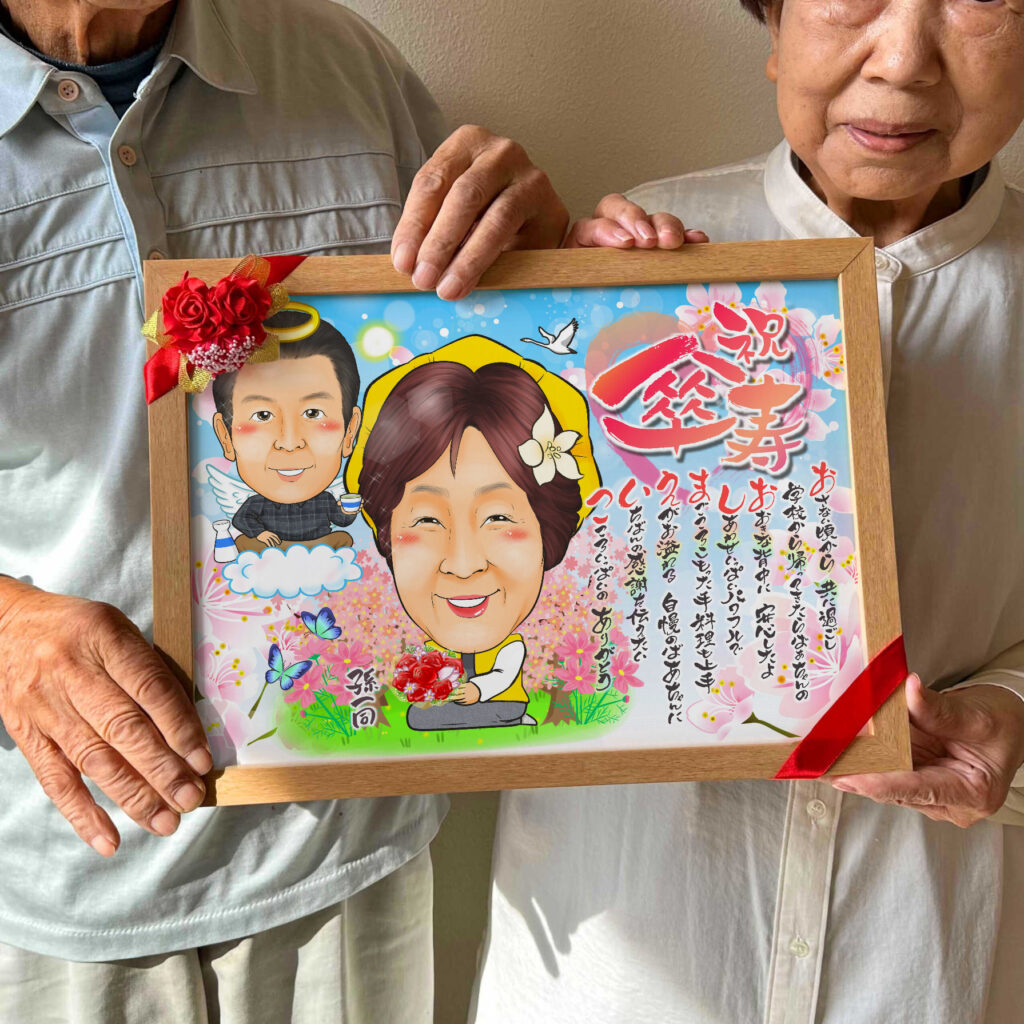 祝
傘寿
おさない頃から 共に過ごし
学校から帰ってきたらばあちゃんの
おおきな背中に 安心したよ
しあわせいっぱいパワフルで
まごころこもった手料理も上手
えがお溢れる 自慢のばあちゃんに
いちばんの感謝を伝えたくて
こころいっぱいの ありがとう
孫一同